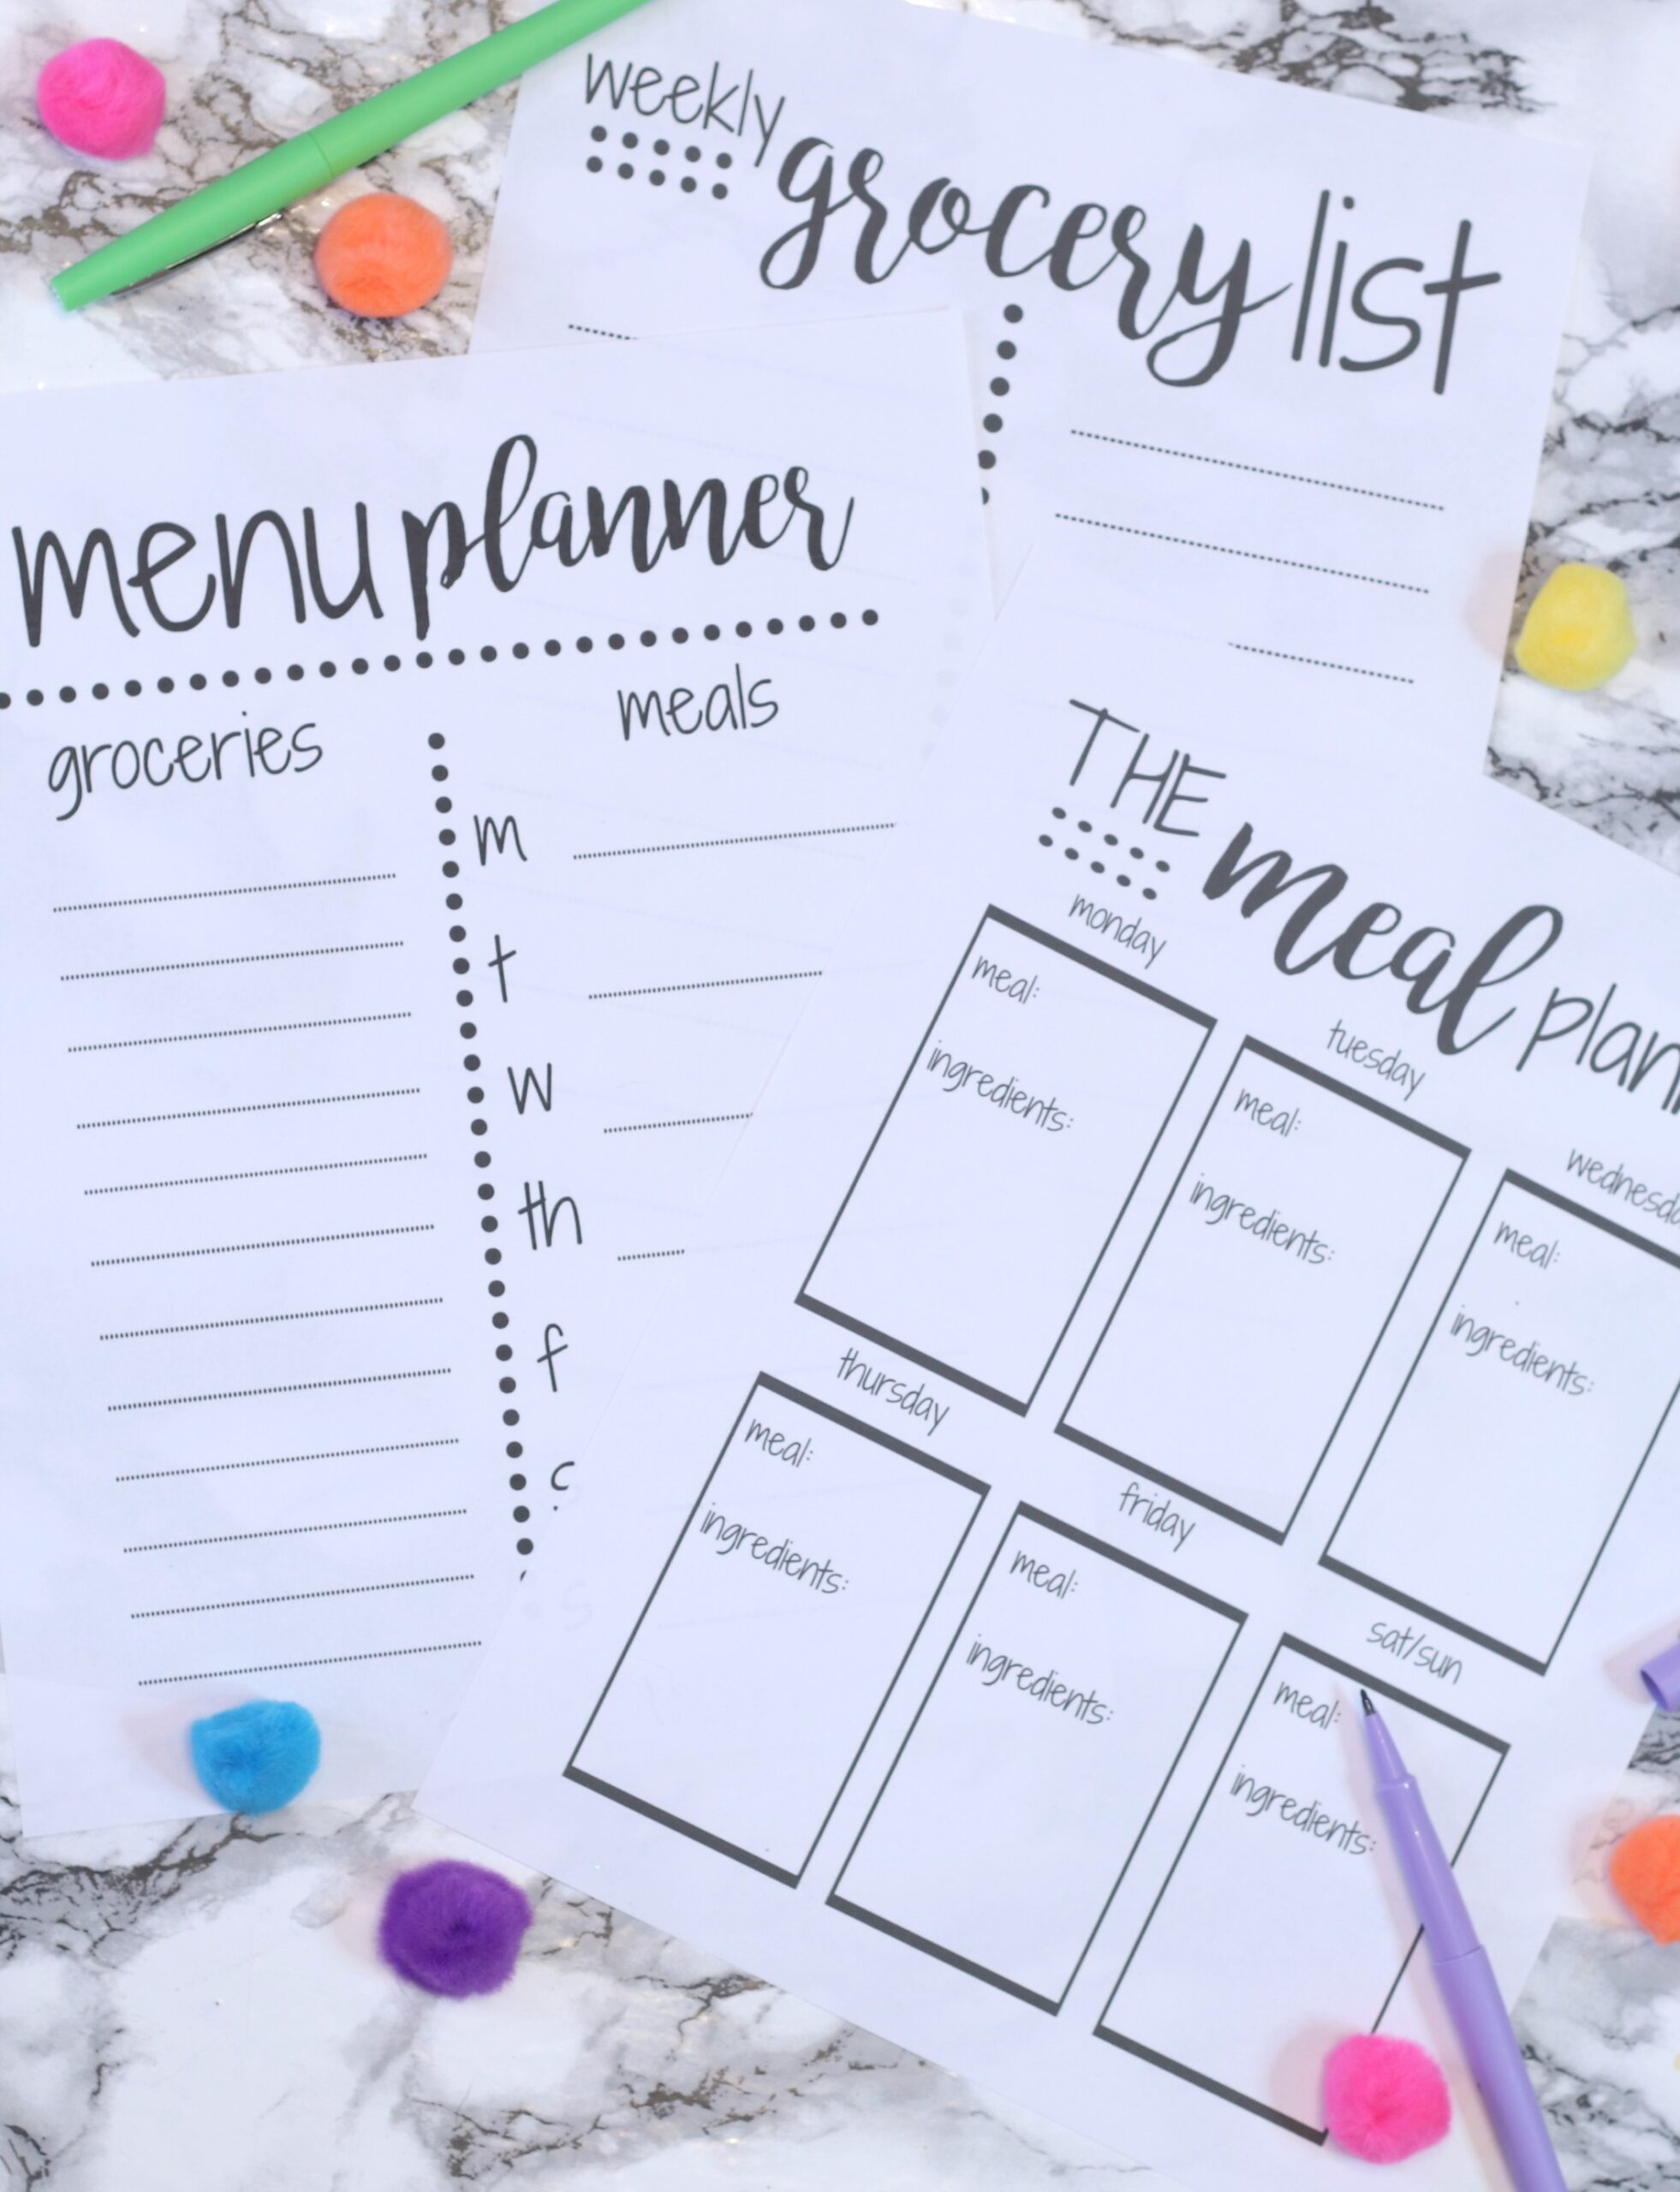 weekly grocery list
menu planner
groceries
meals
m
t
w
th
f
THE meal
monday
tuesday
meal:
ingredients:
meal:
ingredients:
meal:
ingredients:
thursday
friday
sat/sun
meal:
ingredients:
meal:
ingredients:
meal:
ingredients: